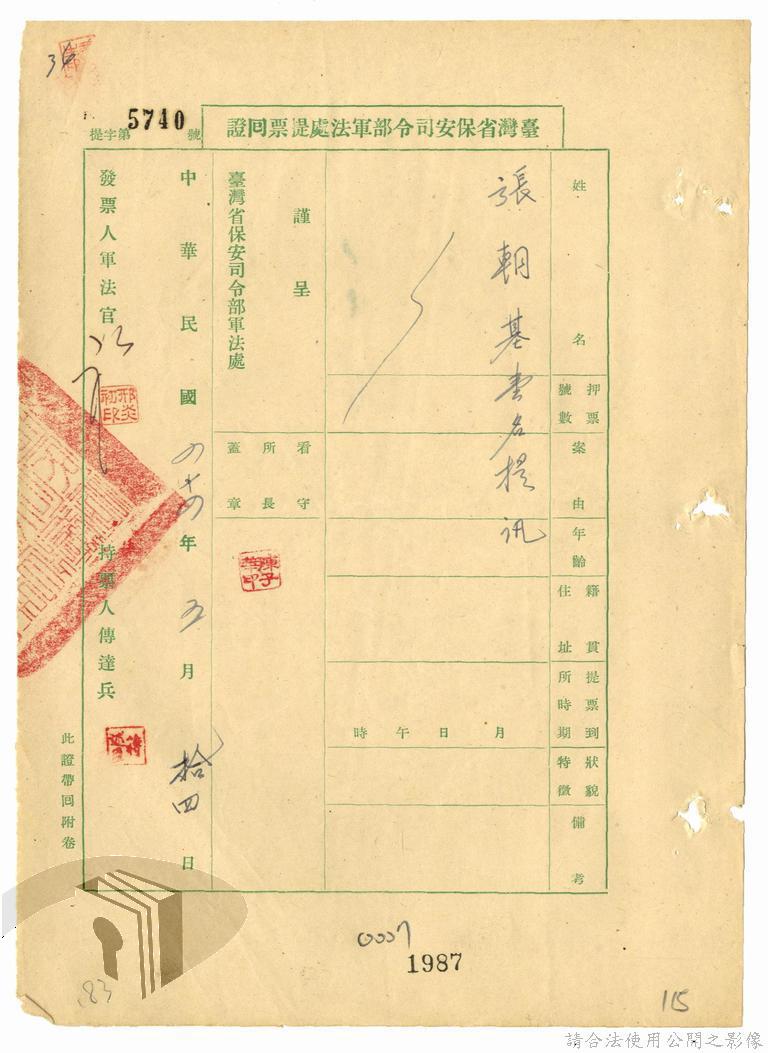 36
提字第5740號
臺灣省保安司令部軍法處提票回證
姓名
張朝基壹名提訊
押票號數
案由
年齡
籍貫住址
提票到所時期
月 日 午 時
狀貌特徵
備考
謹呈
臺灣省保安司令部軍法處
看守所長蓋章
陳子華印
中華民國四十四年五月拾四日
發票人軍法官
邢炎初印
持票人傳達兵
此證帶回附卷
0007
1987
83
115
請合法使用公開之影像